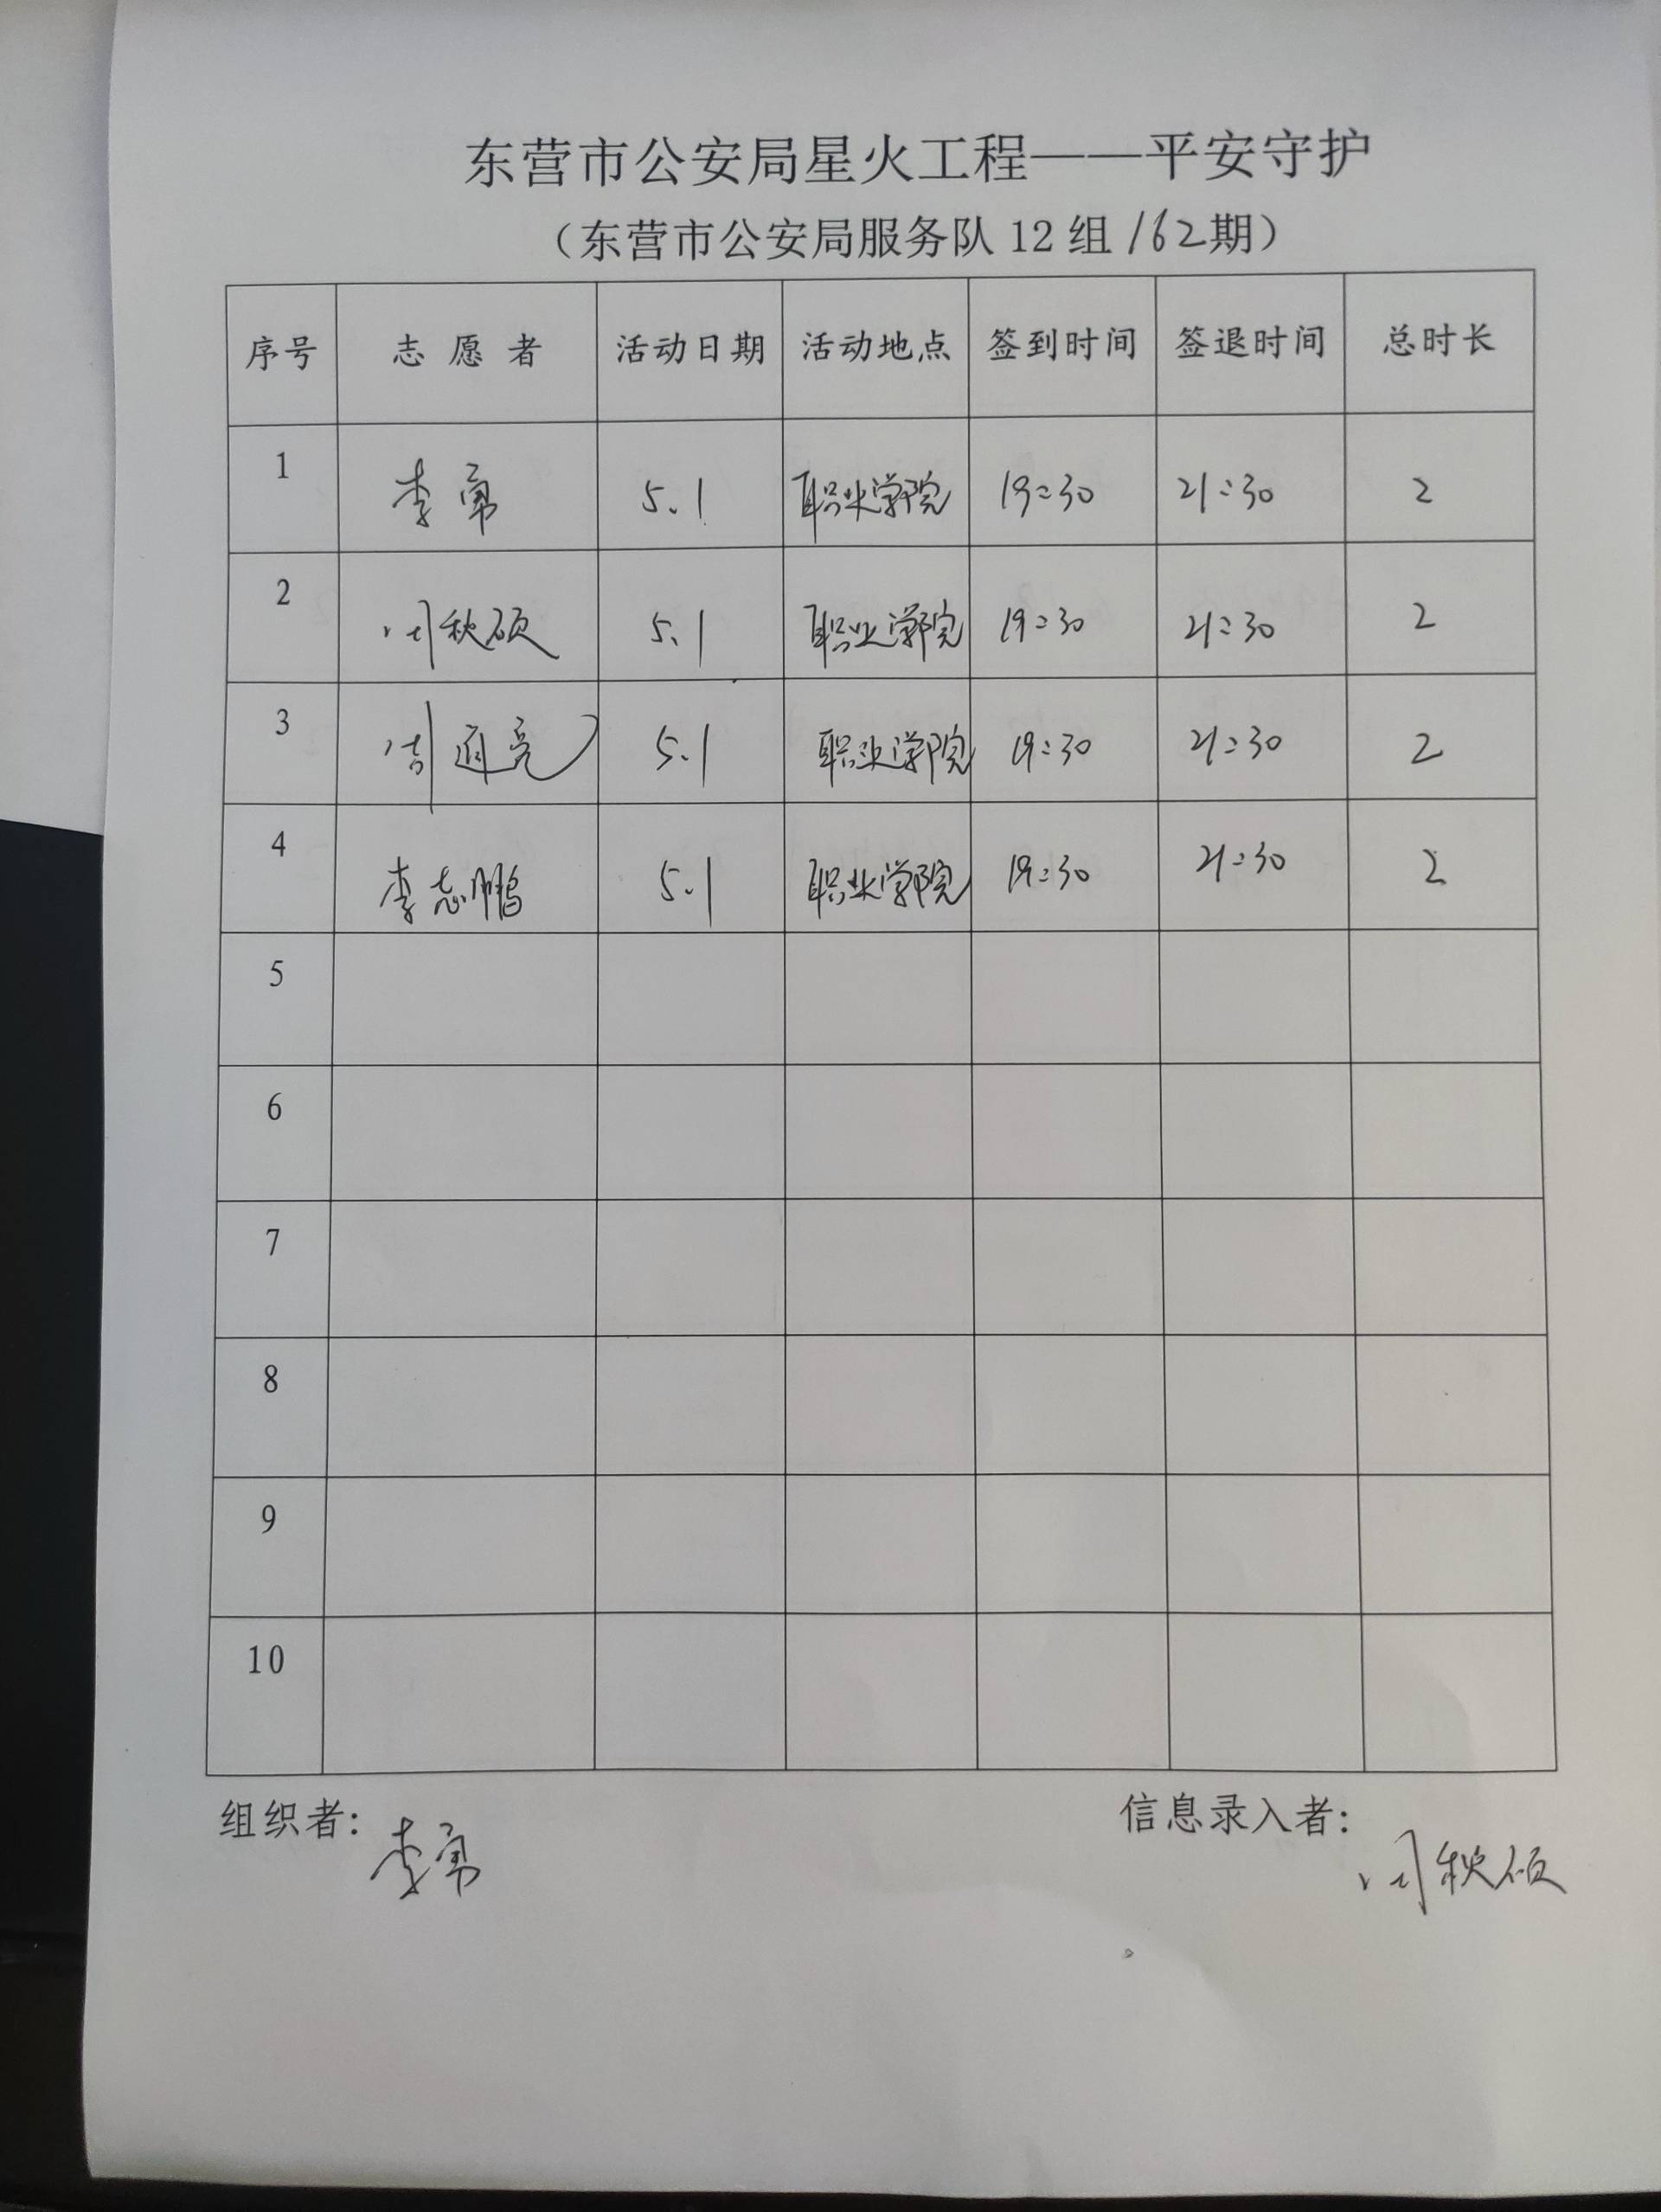 东营市公安局星火工程——平安守护
（东营市公安局服务队 12 组 162期）
序号 志愿者 活动日期 活动地点 签到时间 签退时间 总时长
1 李勇 5.1 职业学院 19:30 21:30 2
2 闫秋硕 5.1 职业学院 19:30 21:30 2
3 5.1 职业学院 19:30 21:30 2
4 李志鹏 5.1 职业学院 19:30 21:30 2
5
6
7
8
9
10
组织者： 李勇 信息录入者： 闫秋硕